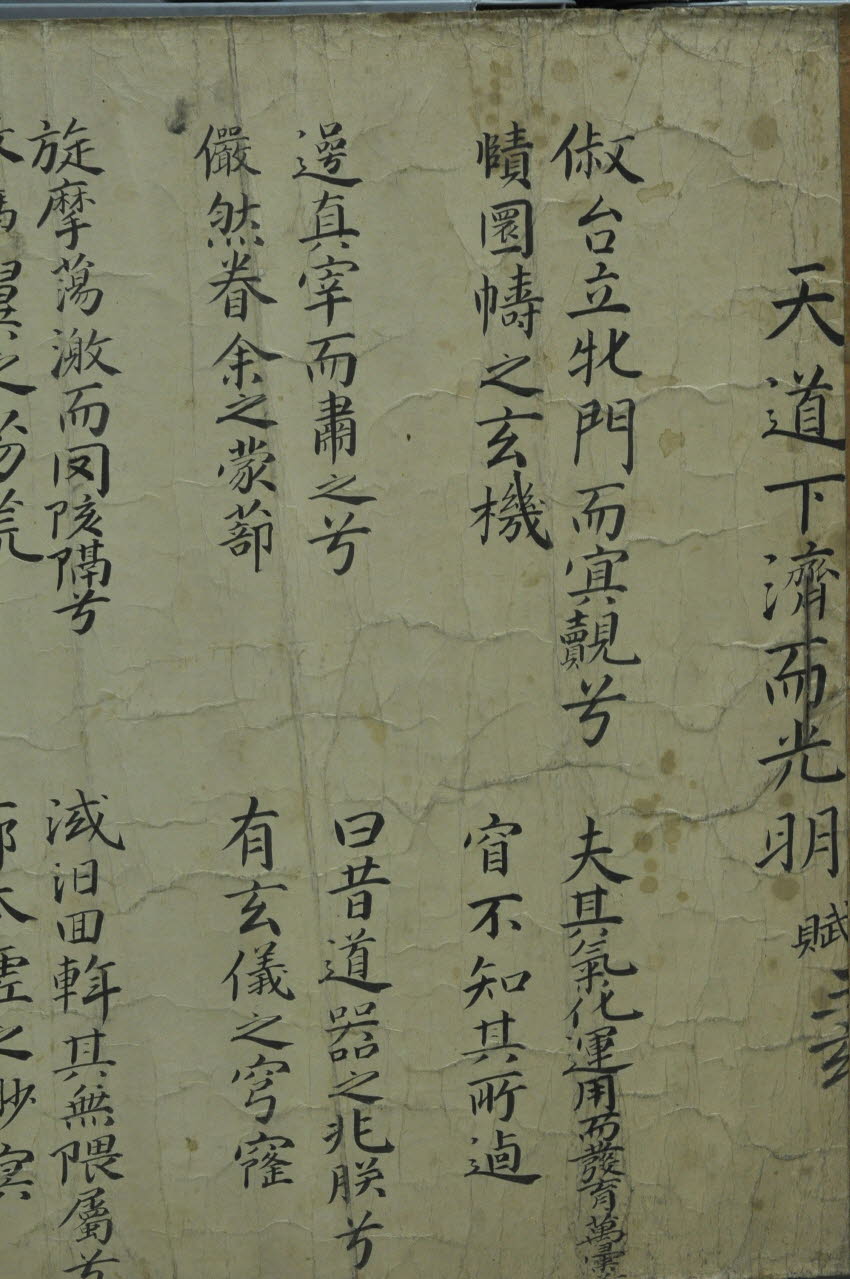 天道下濟而光明 賦
俶台立牝門而冥覿兮 夫其氣化運用而發育萬
幘圜幬之玄機 窅不知其所逌
遌真宰而肅之兮 曰昔道器之兆朕兮
儼然眷余之蒙蔀 有玄儀之穹窿
旋摩蕩激而罔陔隔兮 淢汨回斡其無隈屬兮
翼之